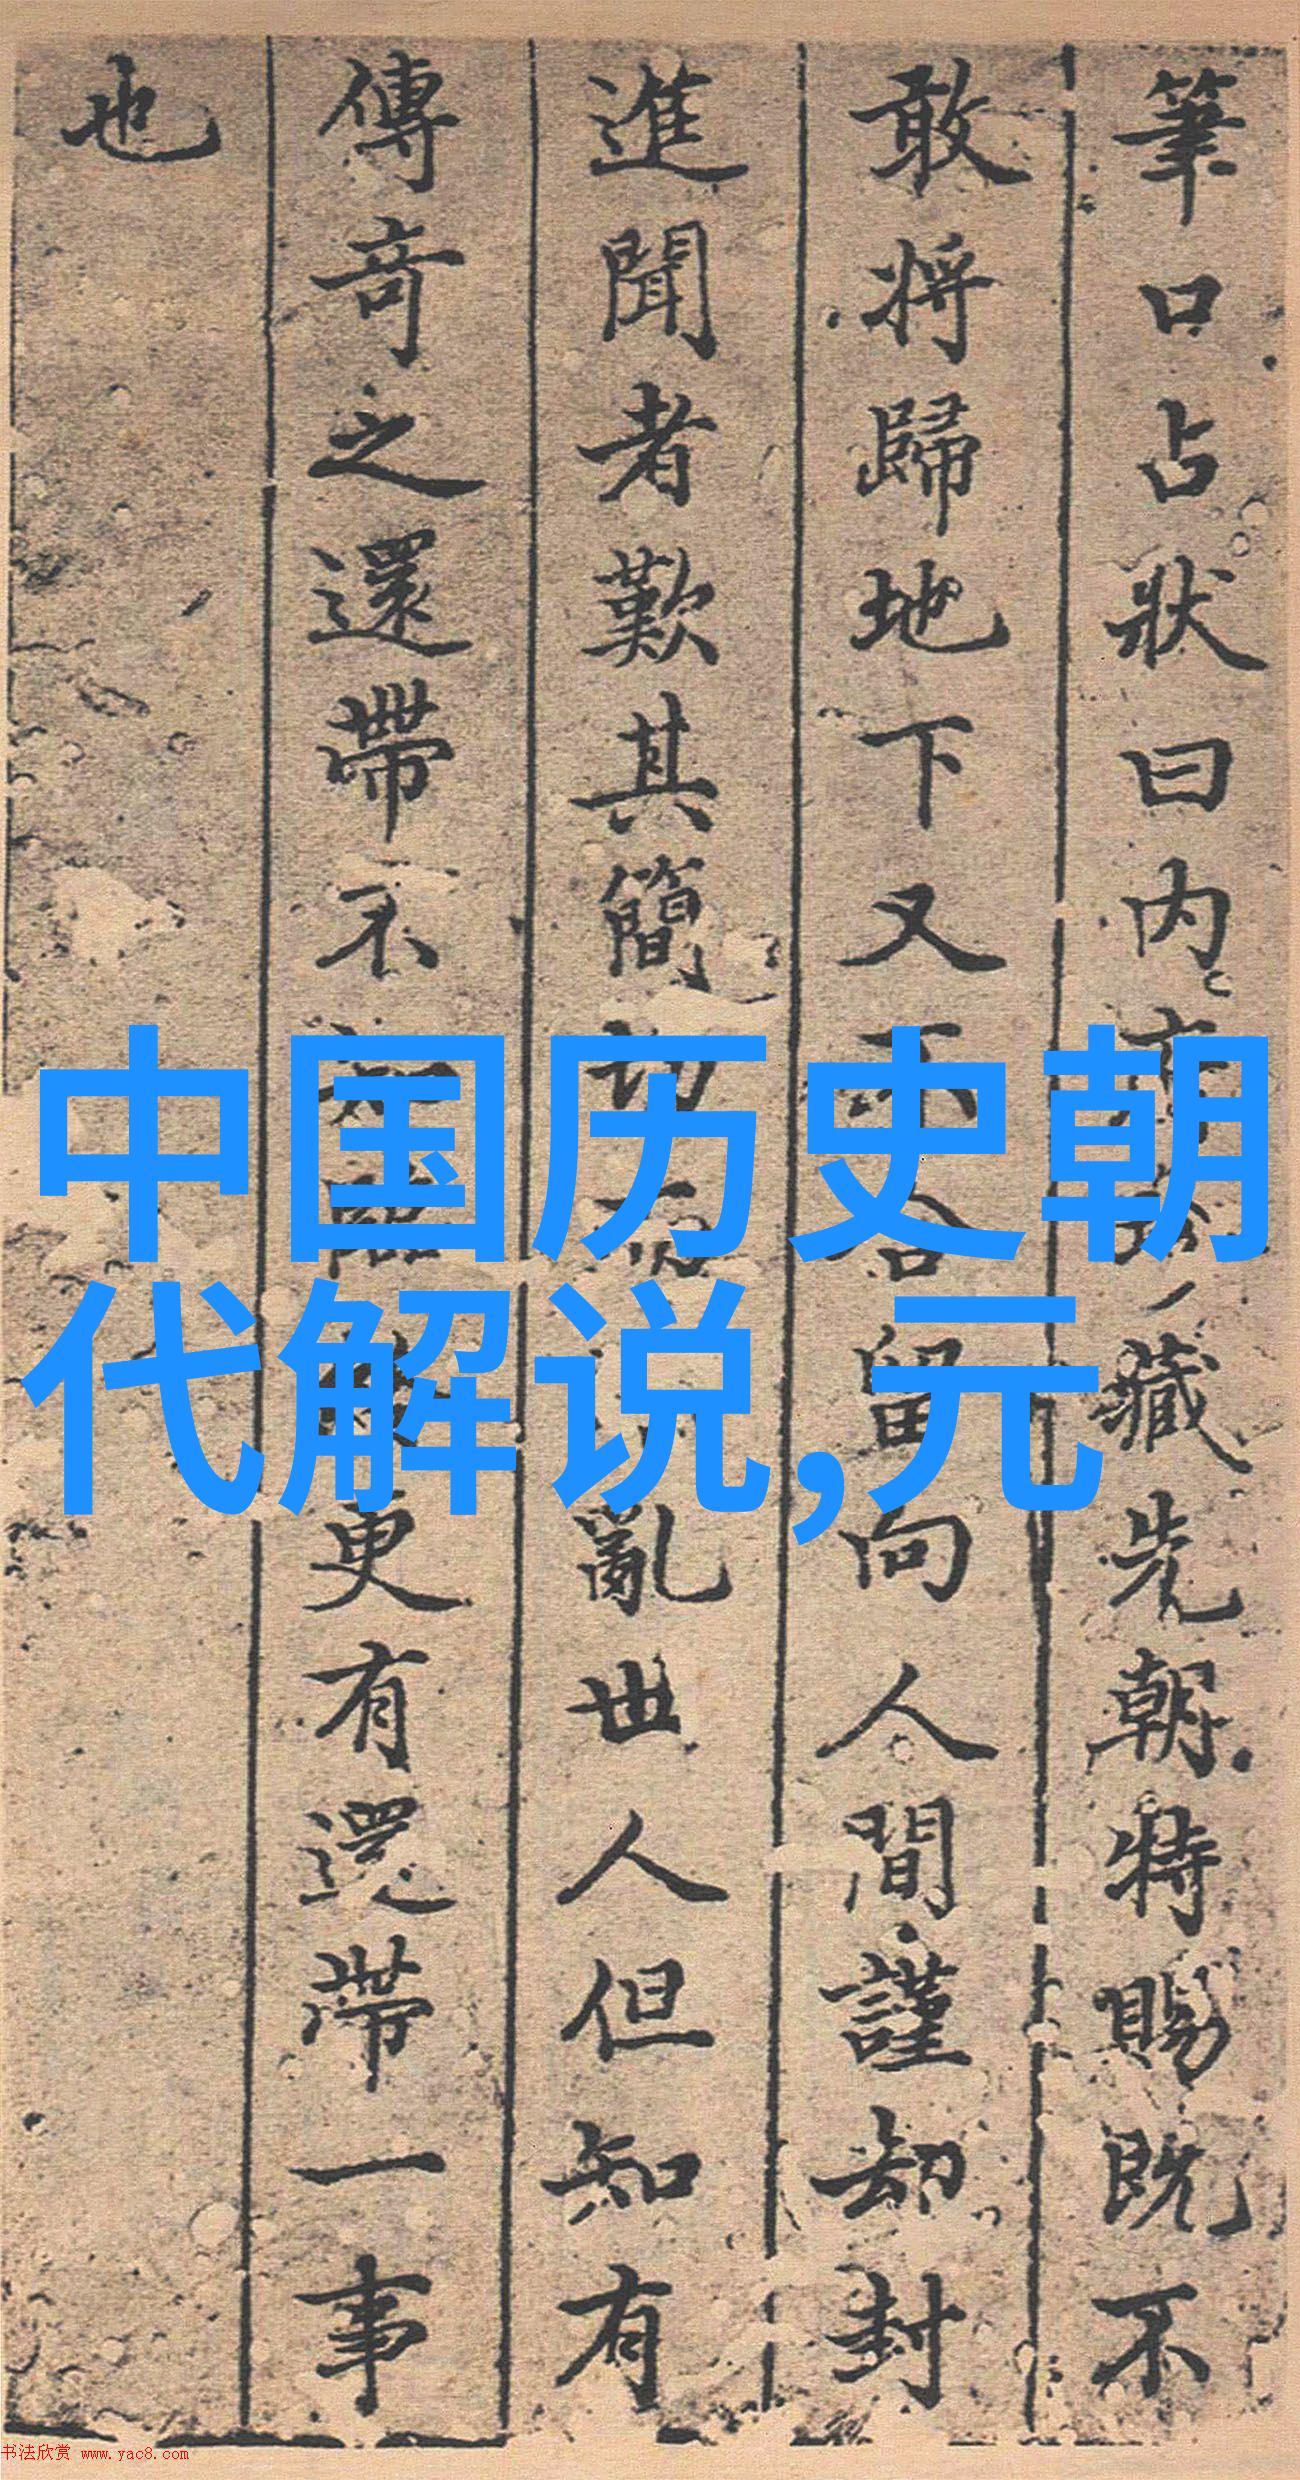 筆口占狀曰内藏先朝特賜既不
敢將歸地下又不合留向人間謹却封
進聞者歎其簡切亂世人但知有
傳奇之還帶不知更有還帶一事
也
中国历史朝
代解说,元
书法欣赏 www.yac8.com